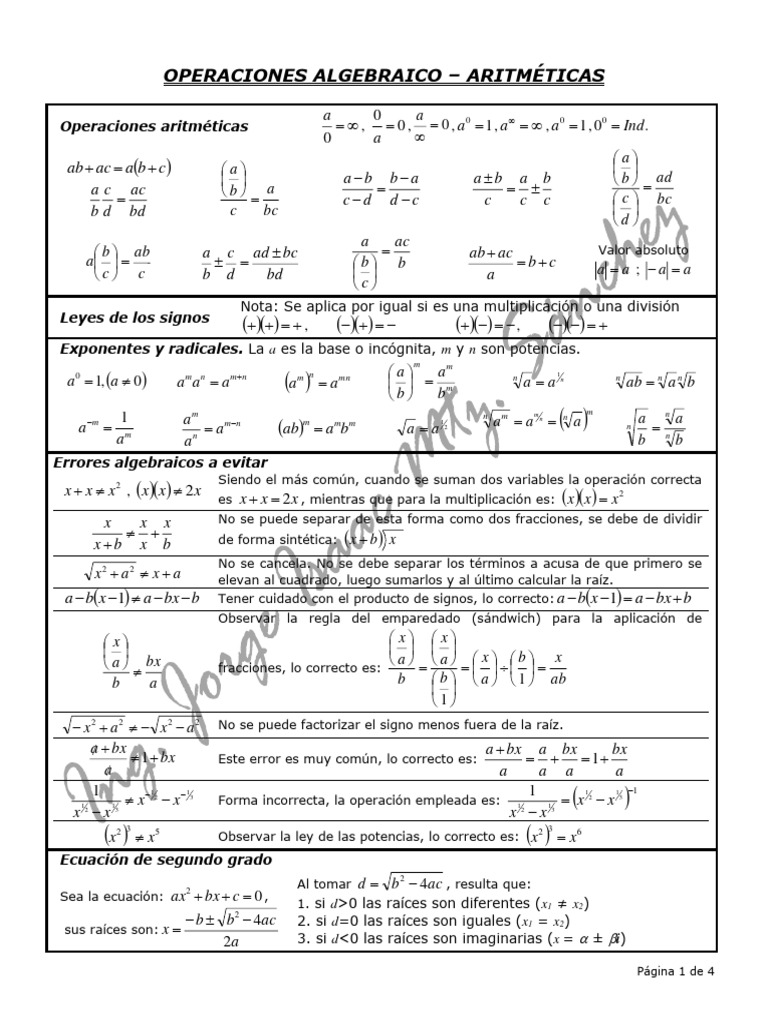 OPERACIONES ALGEBRAICO – ARITMÉTICAS
Operaciones aritméticas
a/0 = ∞, 0/a = 0, a/∞ = 0, a⁰ = 1, a^∞ = ∞, a⁰ = 1, 0⁰ = Ind.
ab + ac = a(b + c)
a/b c/d = ac/bd
(a/b)/c = a/bc
(a − b)/(c − d) = (b − a)/(d − c)
(a ± b)/c = a/c ± b/c
(a/b)/(c/d) = ad/bc
a(b/c) = ab/c
a/b ± c/d = (ad ± bc)/bd
a/(b/c) = ac/b
(ab + ac)/a = b + c
Valor absoluto
|a| = a ; |−a| = a
Leyes de los signos
Nota: Se aplica por igual si es una multiplicación o una división
(+)(+) = +, (−)(+) = − (+)(−) = −, (−)(−) = +
Exponentes y radicales. La a es la base o incógnita, m y n son potencias.
a⁰ = 1, (a ≠ 0) aᵐaⁿ = aᵐ⁺ⁿ (aᵐ)ⁿ = aᵐⁿ (a/b)ᵐ = aᵐ/bᵐ ⁿ√a = a^(1/n) ⁿ√ab = ⁿ√a ⁿ√b
a⁻ᵐ = 1/aᵐ aᵐ/aⁿ = aᵐ⁻ⁿ (ab)ᵐ = aᵐbᵐ √a = a^(1/2) ⁿ√aᵐ = a^(m/n) = (ⁿ√a)ᵐ ⁿ√(a/b) = ⁿ√a/ⁿ√b
Errores algebraicos a evitar
x + x ≠ x² , (x)(x) ≠ 2x
Siendo el más común, cuando se suman dos variables la operación correcta
es x + x = 2x , mientras que para la multiplicación es: (x)(x) = x²
x/(x + b) ≠ x/x + x/b
No se puede separar de esta forma como dos fracciones, se debe de dividir
de forma sintética: (x + b)⟌x
√(x² + a²) ≠ x + a
No se cancela. No se debe separar los términos a acusa de que primero se
elevan al cuadrado, luego sumarlos y al último calcular la raíz.
a − b(x − 1) ≠ a − bx − b
Tener cuidado con el producto de signos, lo correcto: a − b(x − 1) = a − bx + b
(x/a)/b ≠ bx/a
Observar la regla del emparedado (sándwich) para la aplicación de
fracciones, lo correcto es: (x/a)/b = (x/a)/(b/1) = (x/a) ÷ (b/1) = x/ab
√(−x² + a²) ≠ −√(x² − a²)
No se puede factorizar el signo menos fuera de la raíz.
(a + bx)/a ≠ 1 + bx
Este error es muy común, lo correcto es: (a + bx)/a = a/a + bx/a = 1 + bx/a
1/(x^(1/2) − x^(1/3)) ≠ x^(−1/2) − x^(−1/3)
Forma incorrecta, la operación empleada es: 1/(x^(1/2) − x^(1/3)) = (x^(1/2) − x^(1/3))⁻¹
(x²)³ ≠ x⁵
Observar la ley de las potencias, lo correcto es: (x²)³ = x⁶
Ecuación de segundo grado
Sea la ecuación: ax² + bx + c = 0 ,
sus raíces son: x = (−b ± √(b² − 4ac))/2a
Al tomar d = √(b² − 4ac) , resulta que:
1. si d>0 las raíces son diferentes (x₁ ≠ x₂)
2. si d=0 las raíces son iguales (x₁ = x₂)
3. si d<0 las raíces son imaginarias (x = α ± βi)
Ing. Jorge Isaac Mtz. Sánchez
Página 1 de 4